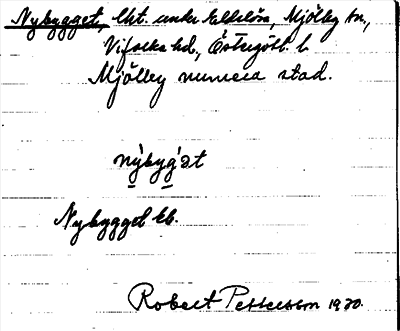 Nybygget, lht. under Mjölby sn,
Vifolka hd, Östergötl. l.
Mjölby numera stad.
nýbyg̀ət
Nybygget kb.
Robert Pettersson 1930.